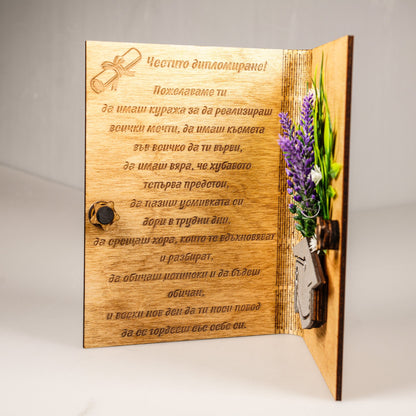 Честито дипломиране!
Пожелаваме ти
да имаш куража за да реализираш
всички мечти, да имаш късмета
във всичко да ти върви,
да имаш вяра, че хубавото
тепърва предстои,
да пазиш усмивката си
дори в трудни дни.
да срещаш хора, които те вдъхновяват
и разбират,
да обичаш истински и да бъдеш
обичан,
и всеки нов ден да ти носи повод
да се гордееш със себе си.